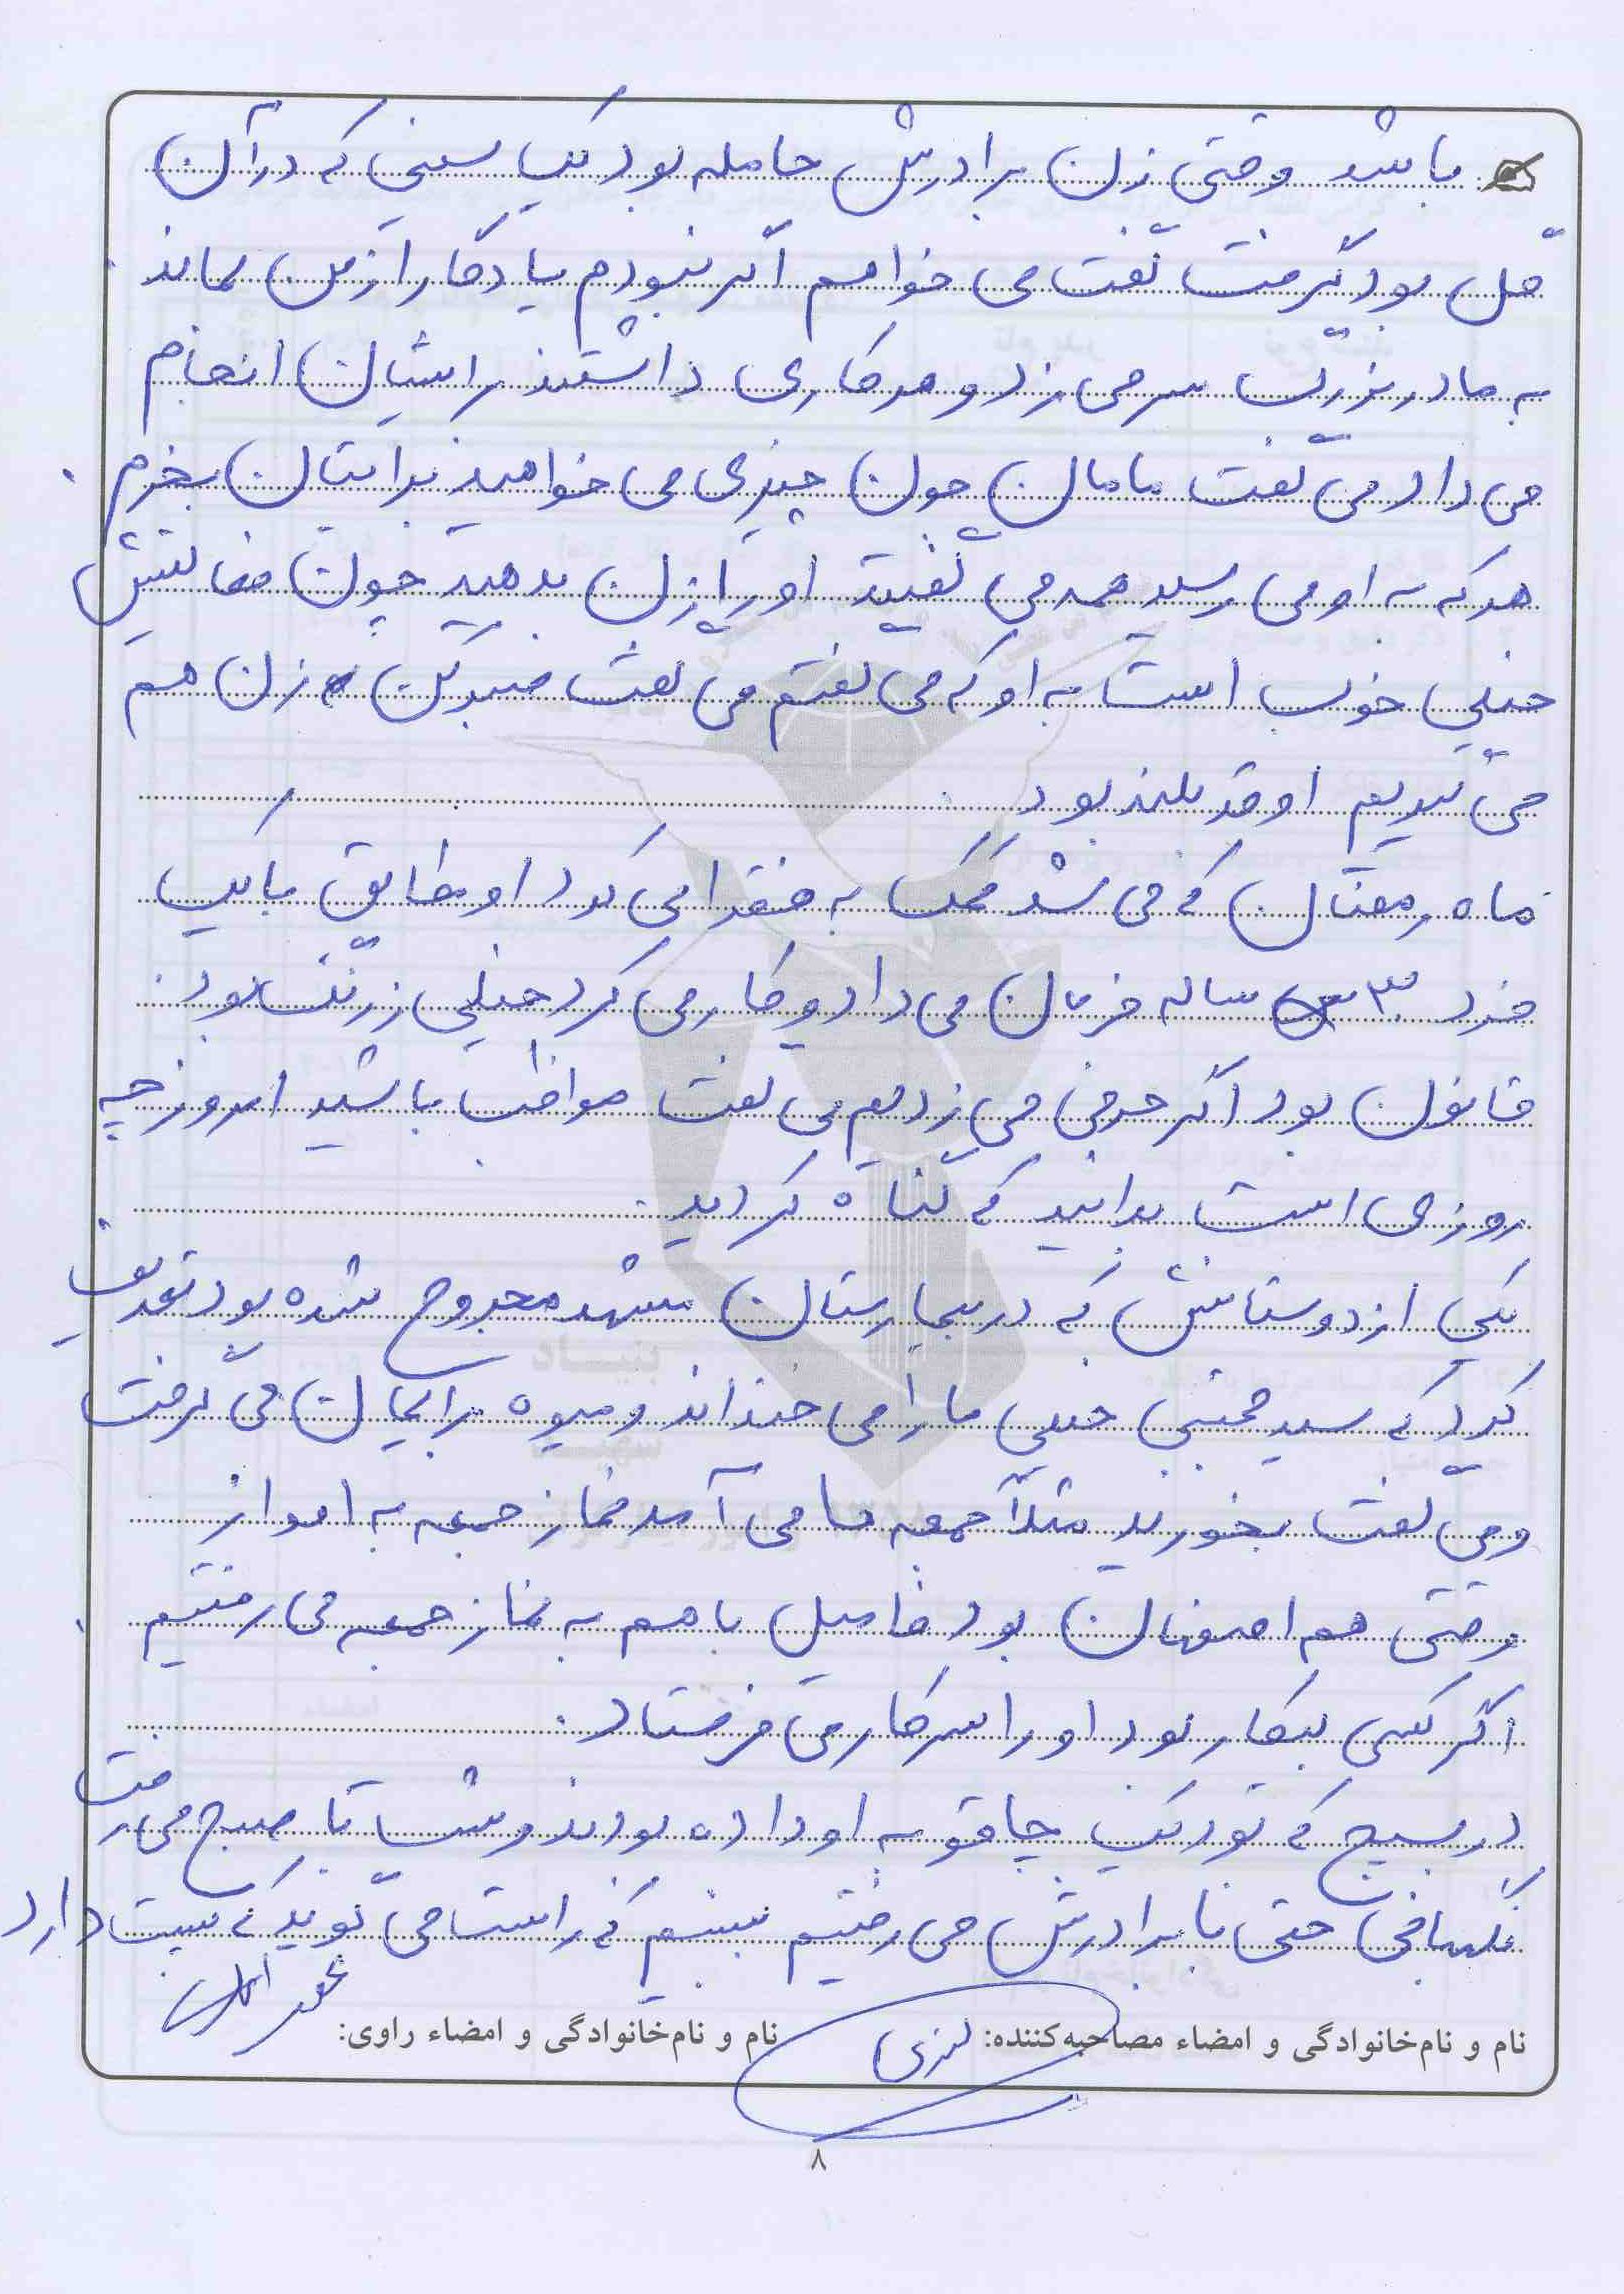 باشد وقتی زن برادرش حامله بود یک سینی که در آن
گل بود گرفت گفت می خواهم اگر نبودم یادگار از من بماند
به مادربزرگ سر می زد و هر کاری داشتند برایشان انجام
می داد می گفت مامان جون چیزی می خواهید برایتان بخرم
هر که به او می رسید همه می گفتند او را زن بدهید چون
خیلی خوب است به او که می گفتم می گفت صبر کن زن هم
می گیریم او قد بلند بود
ماه رمضان که می شد کمک به فقرا می کرد او مطابق با یک
فرد ۳۰ ساله فرمان می داد و کار می کرد خیلی زرنگ بود.
قانون بود اگر حرفی می زدیم می گفت مواظب باشید امروز چه
روزی است بدانید که گناه کردید.
یکی از دوستانش که در بیمارستان مشهد مجروح شده بود تعریف
کرد که سید مجتبی خیلی ما را می خنداند و میوه برایمان می گرفت
و می گفت بخورید مثلاً جمعه ها می آمد نماز جمعه به اهواز
وقتی هم اصفهان بود فامیل با هم به نماز جمعه می رفتیم
اگر کسی بیکار بود او را سر کار می فرستاد.
در بسیج که بود یک چاقو به او داده بودند و شب تا صبح می رفت
نگهبانی حتی با برادرش می رفتیم ببینیم که راست می گوید که پست دارد
نام و نام‌خانوادگی و امضاء مصاحبه‌کننده:
نام و نام‌خانوادگی و امضاء راوی:
۸